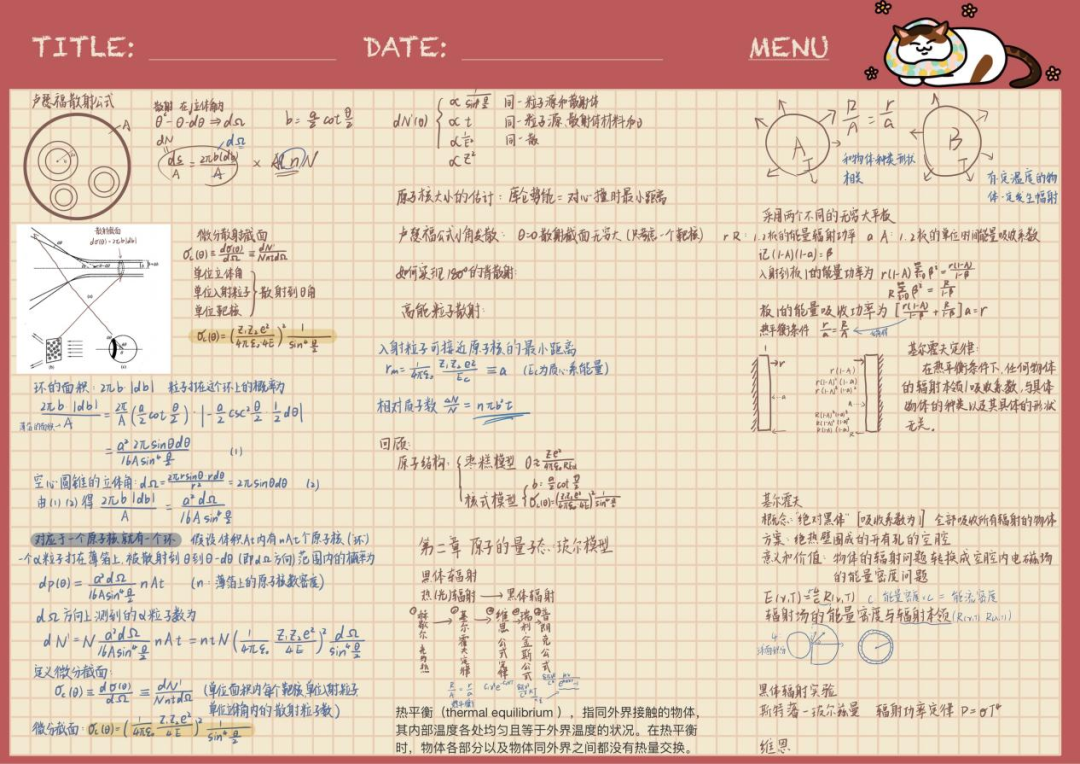 TITLE:
DATE:
MENU
卢瑟福散射公式
A
散射 在立体角内
θ - θ-dθ ⇒ dΩ
b = a/2 cot θ/2
dN → dΩ
ds/A = 2πb|db|/A × nN
散射截面
dσ(θ)=2πb|db|
微分散射截面
σc(θ) = dσ(θ)/dΩ = dN'/NntdΩ
单位立体角
单位入射粒子
单位靶核
散射到θ角
σc(θ) = (Z₁Z₂e²/4πε₀4E)² 1/sin⁴θ/2
环的面积: 2πb |db| 粒子打在这个环上的概率为
2πb |db|/A = 2π/A (a/2 cot θ/2) · |-a/2 csc² θ/2 1/2 dθ|
= a² 2π sinθdθ/16A sin⁴ θ/2 (1)
空心圆锥的立体角: dΩ = 2πrsinθ·rdθ/r² = 2πsinθdθ (2)
由(1)(2)得 2πb|db|/A = a²dΩ/16A sin⁴ θ/2
对应于一个原子核就有一个环 假设体积At内有nAt个原子核(环)
一个α粒子打在薄箔上,被散射到θ到θ-dθ(即dΩ方向)范围内的概率为
dp(θ) = a²dΩ/16A sin⁴ θ/2 nAt (n: 薄箔上的原子核数密度)
dΩ方向上测到的α粒子数为
dN' = N a²dΩ/16A sin⁴ θ/2 nAt = ntN (1/4πε₀ Z₁Z₂e²/4E)² dΩ/sin⁴ θ/2
定义微分截面:
σc(θ) ≡ dσ(θ)/dΩ ≡ dN'/NntdΩ (单位面积内每个靶核,单位入射粒子
单位立体角内的散射粒子数)
微分截面: σc(θ) = (1/4πε₀ Z₁Z₂e²/4E)² 1/sin⁴ θ/2
dN'(θ)
∝ 1/sin⁴ θ/2 同一粒子源和散射体
∝ t 同一粒子源,散射体材料
∝ 1/E² 同一散
∝ Z²
原子核大小的估计: 库仑势能 = 对心撞时最小距离
卢瑟福公式小角发散: θ=0 散射截面无穷大 (只考虑一个靶核)
如何实现180°的背散射
高能粒子散射:
入射粒子可接近原子核的最小距离
rm = 1/4πε₀ Z₁Z₂e²/Ec ≡ a (Ec为质心系能量)
相对原子数 ΔN/N = nπb²t
回顾:
原子结构:
枣糕模型 θ≈
b = a/2 cot θ/2
核式模型
第二章 原子的量子态:玻尔模型
黑体辐射
热(光)辐射 → 黑体辐射
基尔霍夫定律
维恩公式
瑞利金斯公式
普朗克公式
热平衡(thermal equilibrium),指同外界接触的物体,
其内部温度各处均匀且等于外界温度的状况。在热平衡
时,物体各部分以及物体同外界之间都没有热量交换。
A T
R/A = r/a
B T
和物体种类形状
相关
有一定温度的物
体一定发生辐射
采用两个不同的无穷大平板
r R: 1.2板的能量辐射功率 a A: 1.2板的单位时间能量吸收系数
记 (1-A)(1-a)=β
入射到板1的能量功率为
板1的能量吸收功率为 [r(1-A)/1-β + R/1-β] a = r
热平衡条件 r/a = R/A
基尔霍夫定律:
在热平衡条件下,任何物体
的辐射本领/吸收系数,与具体
物体的种类以及其具体的形状
无关。
基尔霍夫
概念:"绝对黑体" [吸收系数为1] 全部吸收所有辐射的物体
方案: 绝热壁围成的开有孔的空腔
意义和价值: 物体的辐射问题转换成空腔内电磁场
的能量密度问题
c·能量密度 = 能流密度
辐射场的能量密度与辐射本领
黑体辐射实验
斯特藩-玻尔兹曼 辐射功率定律 P=σT⁴
维恩